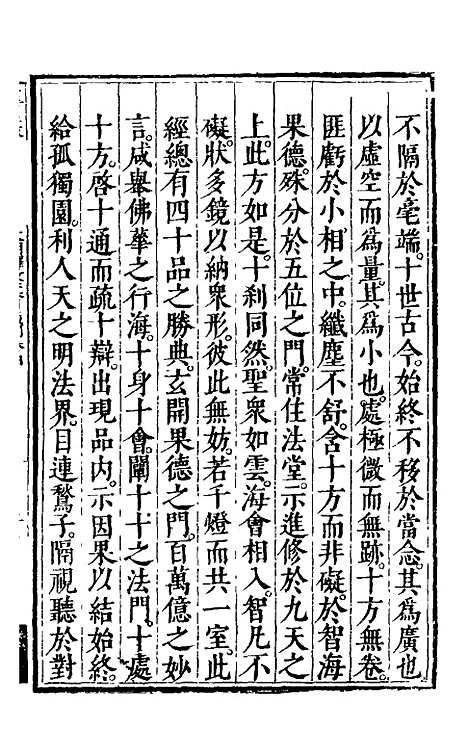 不隔於毫端。十世古今。始終不移於當念。其爲廣也
以虛空而爲量。其爲小也。處極微而無跡。十方無卷。
匪虧於小相之中。纖塵不舒。含十方而非礙。於智海
果德。殊分於五位之門。常住法堂。示進修於九天之
上。此方如是。十刹同然。聖衆如雲。海會相入。智凡不
礙。狀多鏡以納衆形。彼此無妨。若千燈而共一室。此
經總有四十品之勝典。玄開果德之門。百萬億之妙
言。咸舉佛華之行海。十身十會。闡十十之法門。十處
十方。啓十通而疏十辯。出現品內。示因果以結始終。
給孤獨園。利人天之明法界。目連鶖子。隔視聽於對